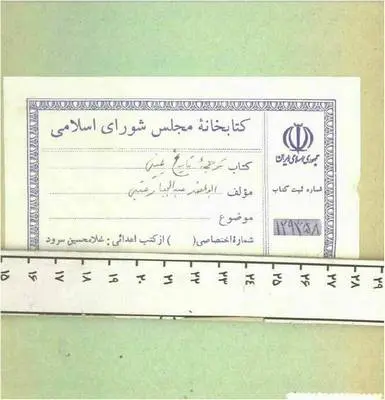 کتابخانهٔ مجلس شورای اسلامی
جمهوری اسلامی ایران
کتاب ترجمهٔ تاریخ یمینی
مؤلف ابونصر عبدالجبار عتبی
شماره ثبت کتاب
موضوع
۱۲۹۷۵۸
شمارهٔ اختصاصی ( ) از کتب اهدائی : غلامحسین سرود
۱۵ ۱۶ ۱۷ ۱۸ ۱۹ ۲۰ ۲۱ ۲۲ ۲۳ ۲۴ ۲۵ ۲۶ ۲۷ ۲۸ ۲۹